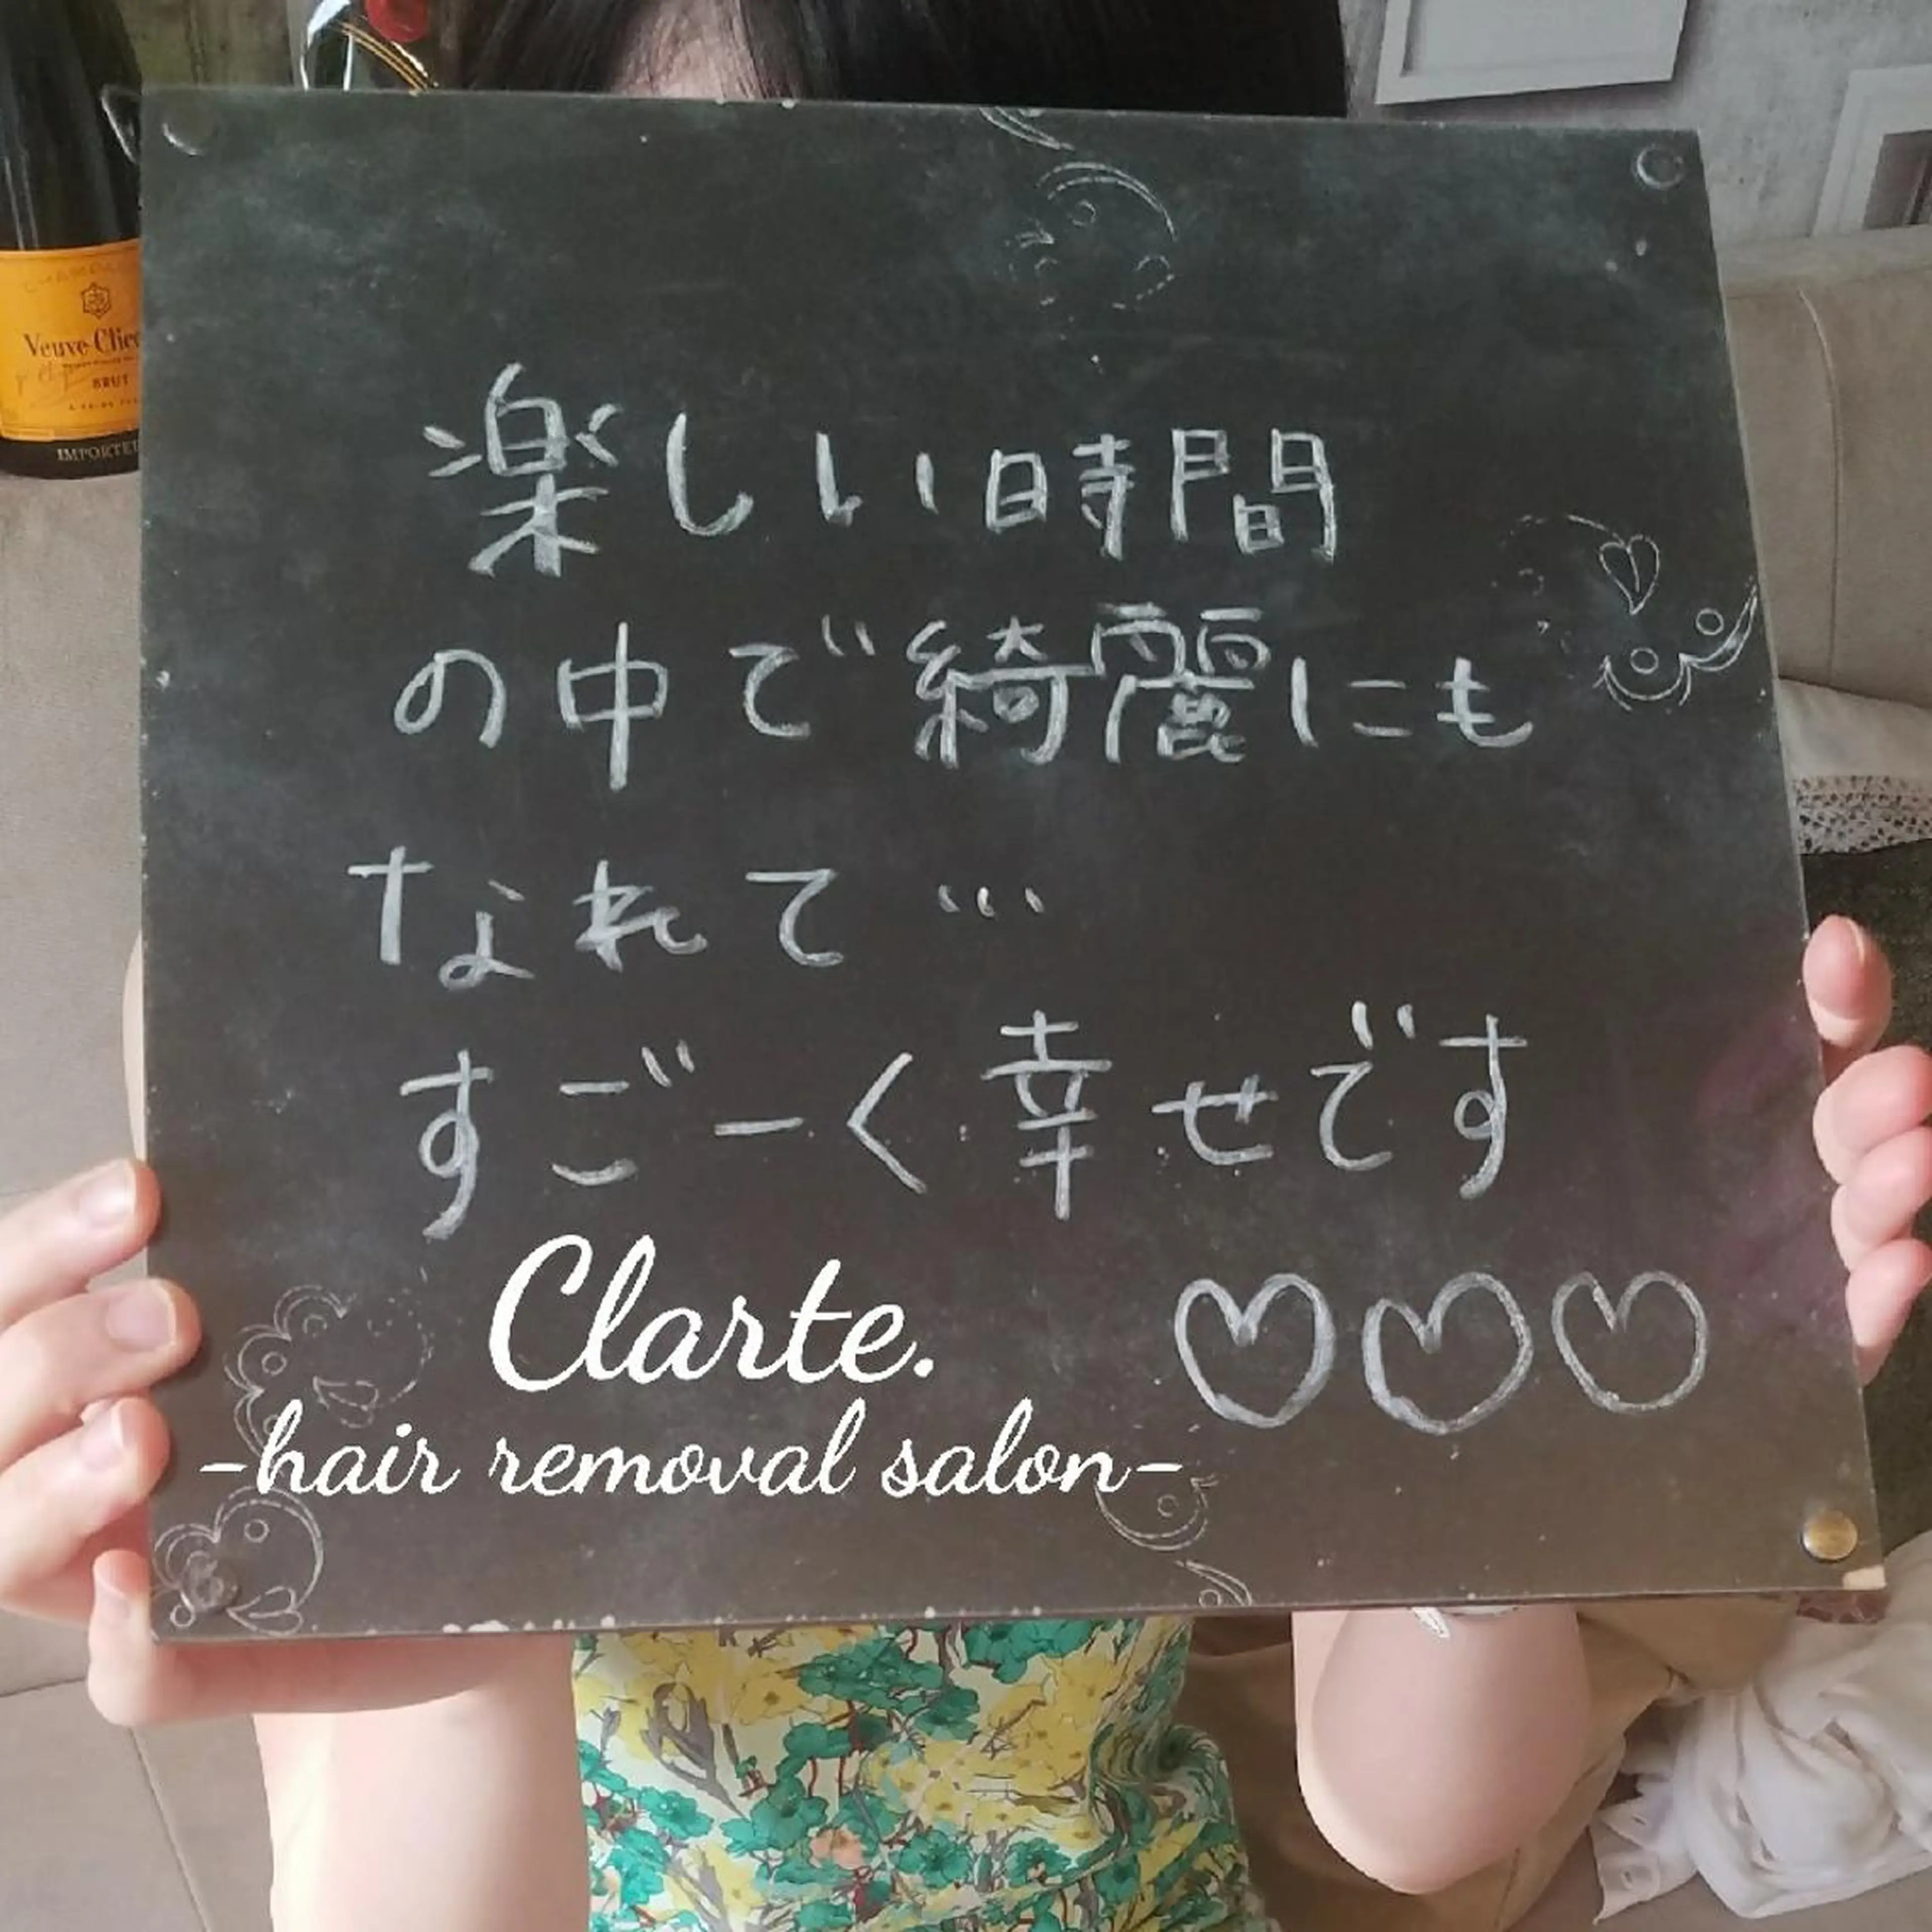 楽しい時間
の中で綺麗にも
なれて…
すごーく幸せです
♡♡♡
Clarte.
-hair removal salon-
Veuve Clic
BRUT
IMPORTE